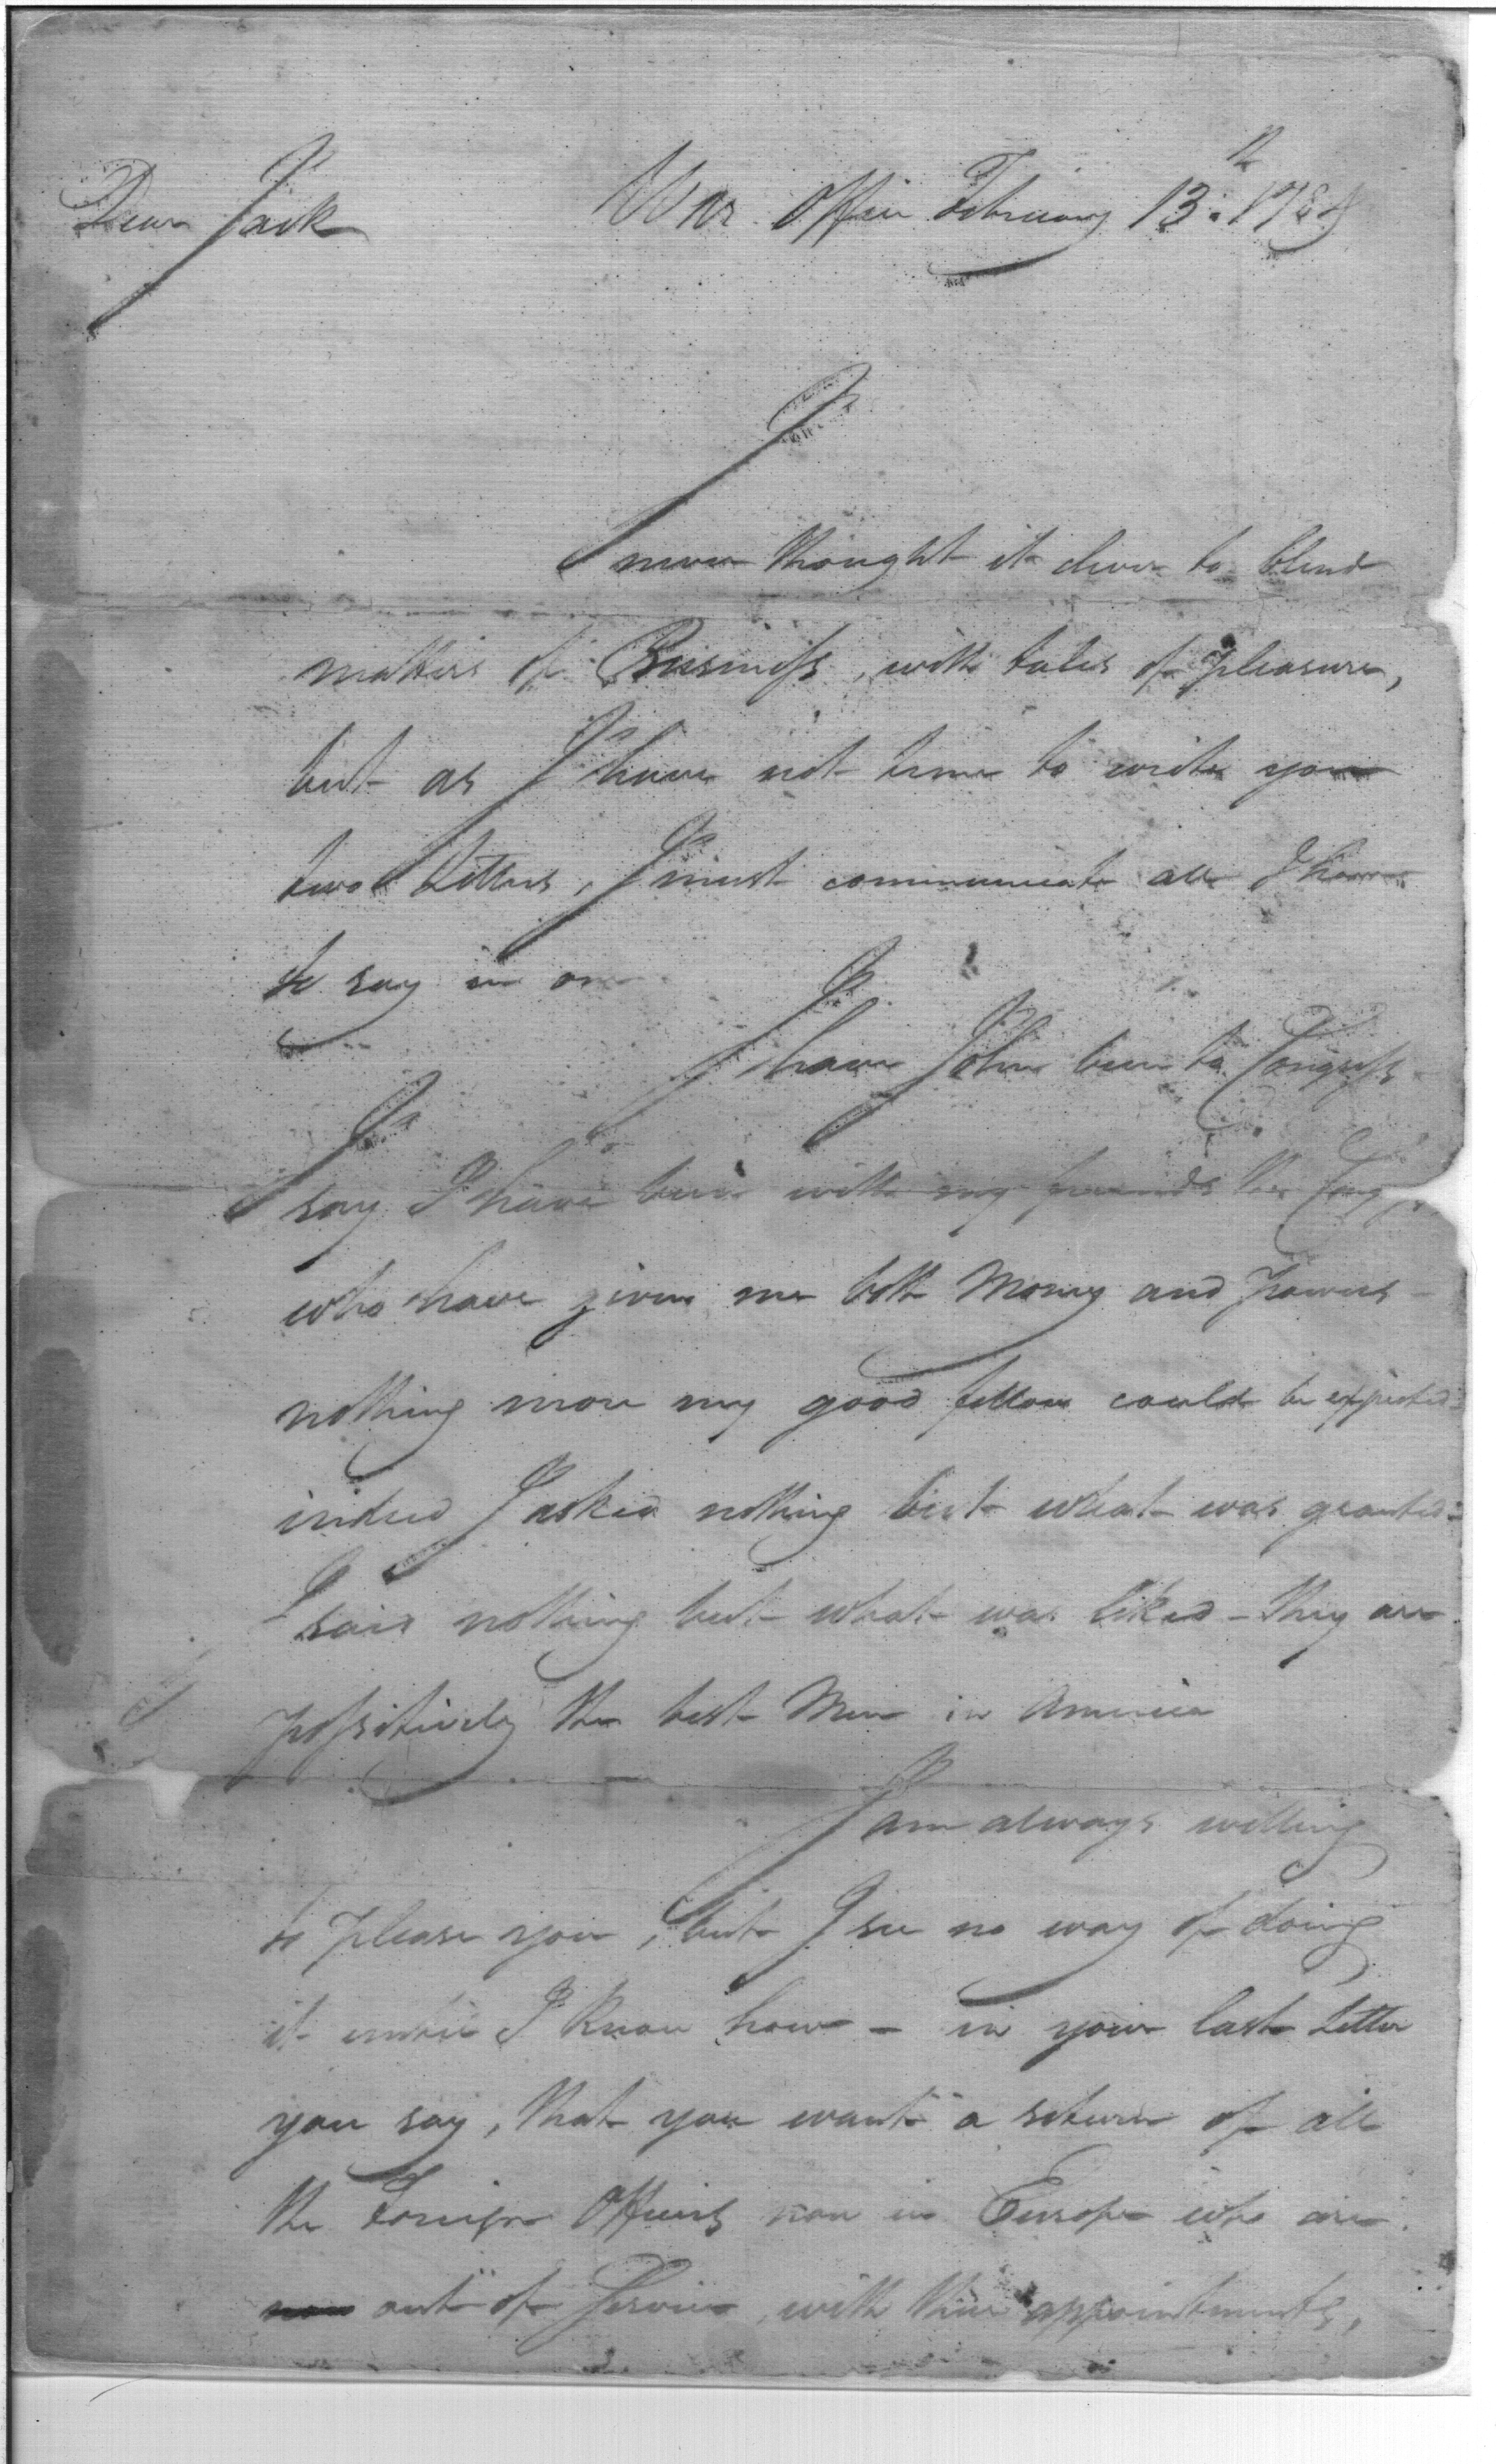 Dear Jack War Office February 13th 1784
I never thought it clever to blend
matters of Business, with tales of pleasure,
but as I have not time to write you
two Letters, I must communicate all I have
to say in one
I have John been to Congress
I say I have been with my friends the Cong
who have given me both Money and Powers –
nothing more my good fellow could be expected –
indeed I asked nothing but what was granted –
I said nothing but what was liked – they are
possitively the best Men in America
I am always willing
to please you, but I see no way of doing
it until I know how – in your last Letter
you say, that you want a return of all
the Foreign Officers now in Europe who are
now out of Service, with their appointments,